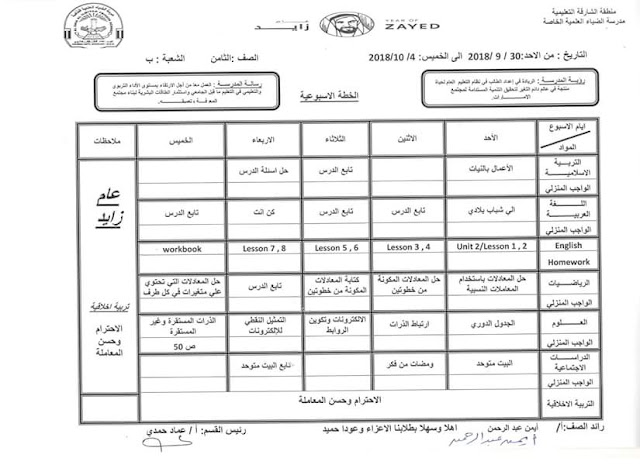 منطقة الشارقة التعليمية
مدرسة الضياء العلمية الخاصة
YEAR OF
ZAYED
عام
زايد
التاريخ : من الاحد: 30 / 9 /2018 الى الخميس: 4 /10 /2018 الصف: الثامن الشعبة: ب
رؤية المدرسة : الريادة في إعداد الطالب في نظام التعليم العام لحياة
منتجة في عالم دائم التغير لتحقيق التنمية المستدامة لمجتمع
الإمارات.
الخطة الاسبوعية
رسالة المدرسة : العمل معا من أجل الارتقاء بمستوى الأداء التربوي
والتعليمي في التعليم ما قبل الجامعي واستثمار الطاقات البشرية لبناء مجتمع
ايام الاسبوع
المواد
الأحد
الاثنين
الثلاثاء
الاربعاء
الخميس
ملاحظات
التربية
الاسلامية
الأعمال بالنيات
تابع الدرس
حل اسئلة الدرس
الواجب المنزلي
عام
زايد
اللغة
العربية
الي شباب بلادي
تابع الدرس
تابع الدرس
كن انت
تابع الدرس
الواجب المنزلي
English
Unit 2/Lesson 1 , 2
Lesson 3 , 4
Lesson 5 , 6
Lesson 7 , 8
workbook
Homework
الرياضيات
حل المعادلات باستخدام
المعاملات النسبية
حل المعادلات المكونة
من خطوتين
كتابة المعادلات
المكونة من خطوتين
تابع الدرس
حل المعادلات التي تحتوي
علي متغيرات في كل طرف
الواجب المنزلي
تربية اخلاقية
الاحترام
وحسن
المعاملة
العلوم
الجدول الدوري
ارتباط الذرات
الالكترونات وتكوين
الروابط
التمثيل النقطي
للإلكترونات
الذرات المستقرة وغير
المستقرة
الواجب المنزلي
ص 50
الدراسات
الاجتماعية
البيت متوحد
ومضات من فكر
تابع البيت متوحد
الواجب المنزلي
التربية الاخلاقية
الاحترام وحسن المعاملة
رائد الصف: أ/ أيمن عبد الرحمن اهلا وسهلا بطلابنا الاعزاء وعودا حميد رئيس القسم: أ / عماد حمدي
أيمن عبد الرحمن